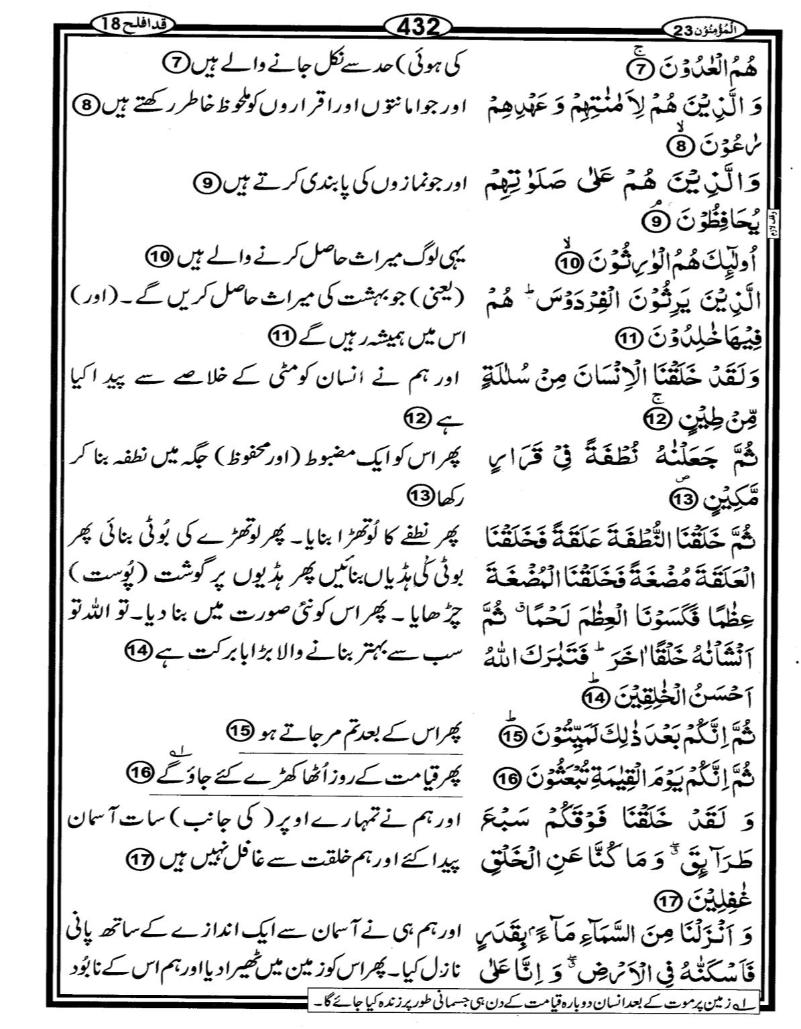 قد افلح 18
432
المؤمنون 23
هُمُ الْعٰدُوْنَ ⑦
وَ الَّذِيْنَ هُمْ لِاَمٰنٰتِهِمْ وَ عَهْدِهِمْ
رٰعُوْنَ ۙ⑧
وَ الَّذِيْنَ هُمْ عَلٰى صَلَوٰتِهِمْ
يُحَافِظُوْنَ ۘ⑨
وقف لازم
اُولٰٓئِكَ هُمُ الْوٰرِثُوْنَ ۙ⑩
الَّذِيْنَ يَرِثُوْنَ الْفِرْدَوْسَ ؕ هُمْ
فِيْهَا خٰلِدُوْنَ ⑪
وَ لَقَدْ خَلَقْنَا الْاِنْسَانَ مِنْ سُلٰلَةٍ
مِّنْ طِيْنٍ ۚ⑫
ثُمَّ جَعَلْنٰهُ نُطْفَةً فِيْ قَرَارٍ
مَّكِيْنٍ ۪⑬
ثُمَّ خَلَقْنَا النُّطْفَةَ عَلَقَةً فَخَلَقْنَا
الْعَلَقَةَ مُضْغَةً فَخَلَقْنَا الْمُضْغَةَ
عِظٰمًا فَكَسَوْنَا الْعِظٰمَ لَحْمًا ۗ ثُمَّ
اَنْشَاْنٰهُ خَلْقًا اٰخَرَ ؕ فَتَبٰرَكَ اللّٰهُ
اَحْسَنُ الْخٰلِقِيْنَ ؕ⑭
ثُمَّ اِنَّكُمْ بَعْدَ ذٰلِكَ لَمَيِّتُوْنَ ؕ⑮
ثُمَّ اِنَّكُمْ يَوْمَ الْقِيٰمَةِ تُبْعَثُوْنَ ⑯
وَ لَقَدْ خَلَقْنَا فَوْقَكُمْ سَبْعَ
طَرَآئِقَ ۖ وَ مَا كُنَّا عَنِ الْخَلْقِ
غٰفِلِيْنَ ⑰
وَ اَنْزَلْنَا مِنَ السَّمَآءِ مَآءًۢ بِقَدَرٍ
فَاَسْكَنّٰهُ فِي الْاَرْضِ ۖ وَ اِنَّا عَلٰى
کی ہوئی) حد سے نکل جانے والے ہیں ⑦
اور جو امانتوں اور اقراروں کو ملحوظ خاطر رکھتے ہیں ⑧
اور جو نمازوں کی پابندی کرتے ہیں ⑨
یہی لوگ میراث حاصل کرنے والے ہیں ⑩
(یعنی) جو بہشت کی میراث حاصل کریں گے۔ (اور)
اس میں ہمیشہ رہیں گے ⑪
اور ہم نے انسان کو مٹی کے خلاصے سے پیدا کیا
ہے ⑫
پھر اس کو ایک مضبوط (اور محفوظ) جگہ میں نطفہ بنا کر
رکھا ⑬
پھر نطفے کا لُوتھڑا بنایا۔ پھر لوتھڑے کی بُوٹی بنائی پھر
بوٹی کی ہڈیاں بنائیں پھر ہڈیوں پر گوشت (پُوست)
چڑھایا۔ پھر اس کو نئی صورت میں بنا دیا۔ تو اللہ تو
سب سے بہتر بنانے والا بڑا بابرکت ہے ⑭
پھر اس کے بعد تم مر جاتے ہو ⑮
پھر قیامت کے روز اُٹھا کھڑے کئے جاؤ گے ؂۱ ⑯
اور ہم نے تمہارے اوپر (کی جانب) سات آسمان
پیدا کئے اور ہم خلقت سے غافل نہیں ہیں ⑰
اور ہم ہی نے آسمان سے ایک اندازے کے ساتھ پانی
نازل کیا۔ پھر اس کو زمین میں ٹھیرا دیا اور ہم اس کے نابُود
؂۱ زمین پر موت کے بعد انسان دوبارہ قیامت کے دن ہی جسمانی طور پر زندہ کیا جائے گا۔